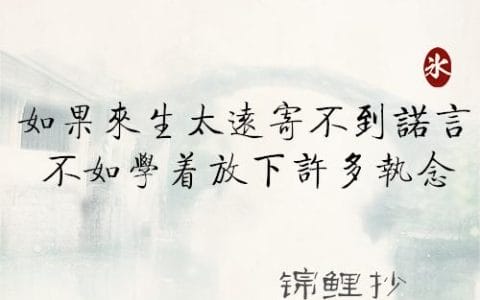 氷
如果來生太遠寄不到諾言
不如學着放下許多執念
锦鲤抄